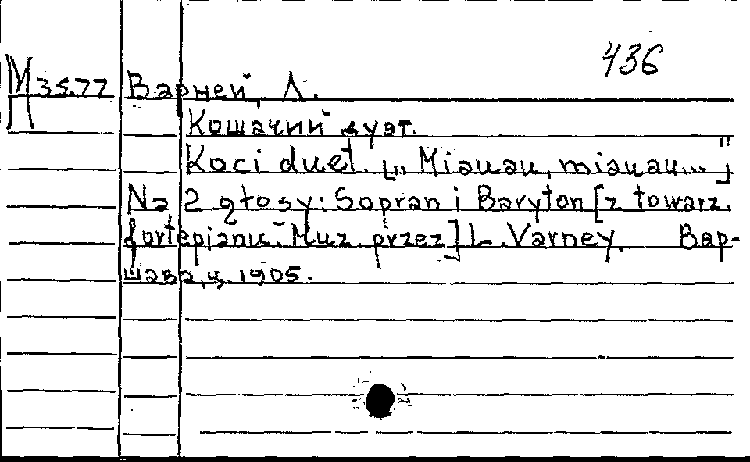 436
М 35.77 Варней, Л.
Кошачий дуэт.
Koci duet. [„Miauau, miauau..."]
Na 2 głosy: Sopran i Baryton [z towarz.
fortepianu. Muz. przez] L. Varney. Вар-
шава, ц. 1905.